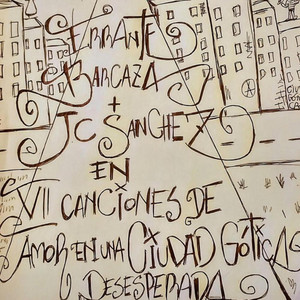 ERRANTE
BARCAZA
+
JC SANCHEZ
EN
VII CANCIONES DE
AMOR EN UNA CIUDAD GÓTICA
DESESPERADA